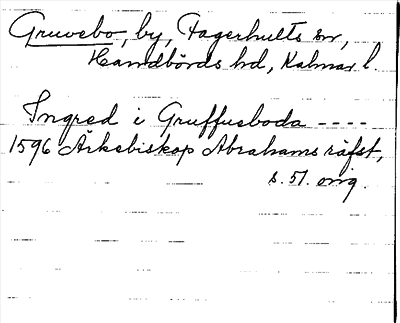 Gruvebo, by, Fagerhults sn,
Handbörds hd, Kalmar l.
Ingred i Gruffueboda ----
1596 Ärkebiskop Abrahams räfst,
s. 51. orig.